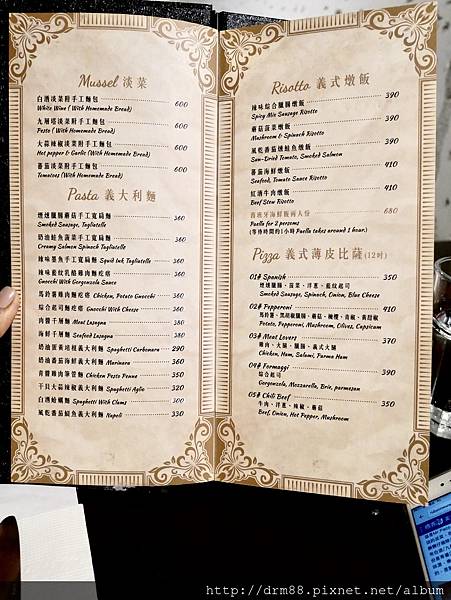 Mussel 淡菜
白酒淡菜附手工麵包 600
White Wine ( With Homemade Bread)
九層塔淡菜附手工麵包 600
Pesto ( With Homemade Bread)
大蒜辣椒淡菜附手工麵包 600
Hot pepper & Garlic (With Homemade Bread)
蕃茄淡菜附手工麵包 600
Tomatoes (With Homemade Bread)
Pasta 義大利麵
煙燻臘腸蘑菇手工寬扁麵 360
Smoked Sausage, Tagliatelle
奶油鮭魚菠菜手工寬扁麵 360
Creamy Salmon Spinach Tagliatelle
辣味墨魚手工寬扁麵 Squid Ink Tagliatelle 360
辣味藍紋乳酪雞肉麵疙瘩 360
Gnocchi With Gorgonzola Sauce
馬鈴薯雞肉麵疙瘩 Chicken, Potato Gnocchi 360
綜合起司麵疙瘩 Gnocchi With Cheese 360
肉醬千層麵 Meat Lasagna 380
海鮮千層麵 Seafood Lasagna 380
奶油蛋黃培根義大利麵 Spaghetti Carbonara 290
奶油蕃茄海鮮義大利麵 Marinara 360
青醬雞肉筆管麵 Chicken Pesto Penne 350
干貝大蒜辣椒義大利麵 Spaghetti Aglio 320
白酒蛤蠣麵 Spaghetti With Clams 300
風乾番茄鯷魚義大利麵 Napoli 330
Risotto 義式燉飯
辣味綜合臘腸燉飯 390
Spicy Mix Sausage Risotto
蘑菇菠菜燉飯 390
Mushroom & Spinach Risotto
風乾番茄燻鮭魚燉飯 390
Sun-Dried Tomato, Smoked Salmon
蕃茄海鮮燉飯 410
Seafood, Tomato Sauce Risotto
紅酒牛肉燉飯 410
Beef Stew Risotto
西班牙海鮮飯兩人份 680
Paella for 2 persons
(等待時間約1小時 Paella takes around 1 hour.)
Pizza 義式薄皮比薩(12吋)
01# Spanish 350
煙燻臘腸、菠菜、洋蔥、藍紋起司
Smoked Sausage, Spinach, Onion, Blue Cheese
02# Pepperoni 410
馬鈴薯、黑胡椒臘腸、蘑菇、橄欖、青椒、黃甜椒
Potato, Pepperoni, Mushroom, Olives, Capsicum
03# Meat Lovers 370
雞肉、火腿、臘腸、義式火腿
Chicken, Ham, Salami, Parma Ham
04# Formaggi 390
綜合起司
Gorgonzola, Mozzarella, Brie, parmesan
05# Chili Beef 350
牛肉、洋蔥、辣椒、蘑菇
Beef, Onion, Hot Pepper, Mushroom
http://drm88.pixnet.net/album